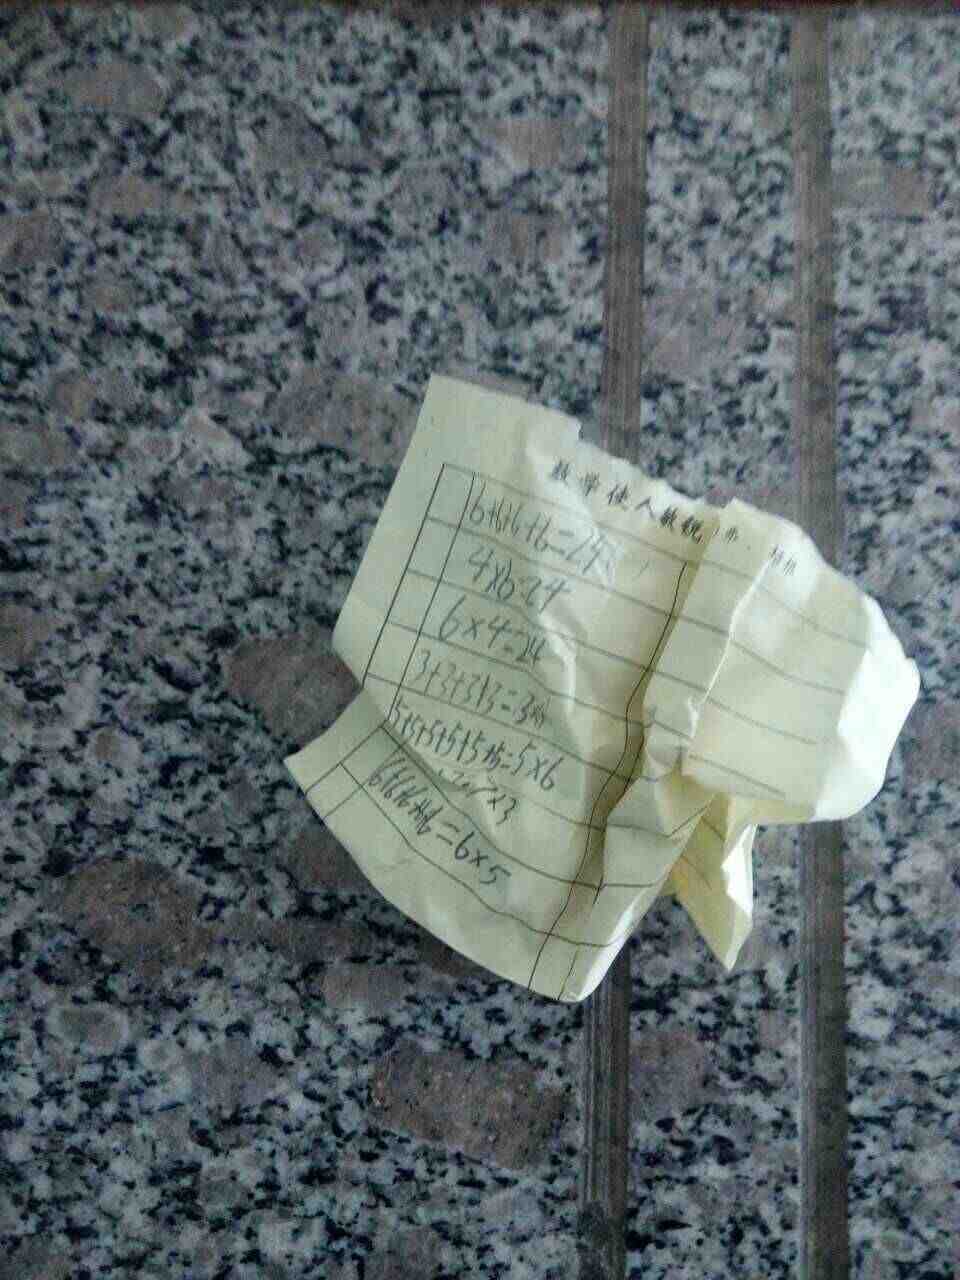 数学使人敏锐
6+6+6+6=24
4×6=24
6×4=24
3+3+3+3=3×4
5+5+5+5+5+5=5×6
6+6+6+6+6=6×5